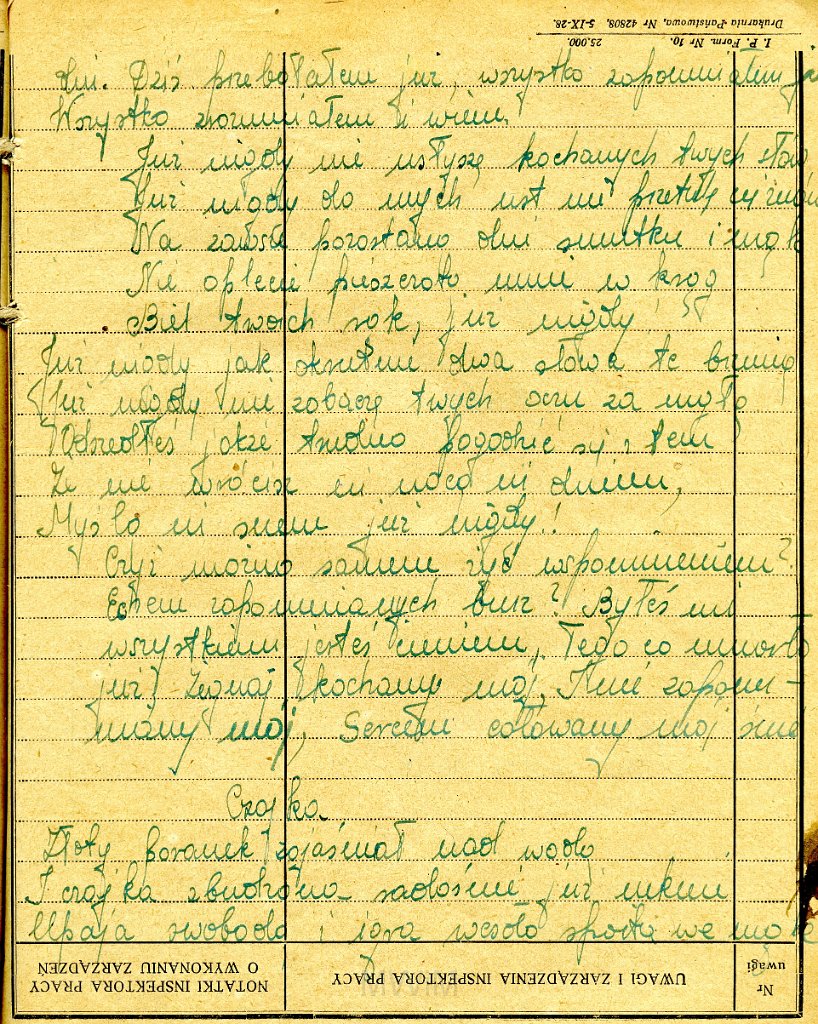 dni. Dziś przebolałem już, wszystko zapomniałem już
Wszystko zrozumiałem i wiem.
Już nigdy nie usłyszę kochanych twych słów
Już nigdy do mych ust nie przetulę cię znów
Na zawsze pozostaną dni smutku i mąk
Nie oplecie pieszczotą mnie w krąg
Biel twoich rąk, już nigdy!
Już nigdy jak okrutnie dwa słowa te brzmią
Już nigdy nie zobaczę twych oczu za mgłą
Odszedłeś jakże trudno pogodzić się z tem
Że nie wrócisz ni nocą ni dniem,
Myślą ni snem już nigdy!
Czyż można samem żyć wspomnieniem?
Echem zapomnianych burz? Byłeś mi
wszystkiem jesteś cieniem, Tego co minęło
już, Żegnaj kochany mój, zapom-
niany mój, Sercem całowany mój śnie
Czajka
Złoty poranek zajaśniał nad wodą
I czajka zbudzona radośnie już mknie
Upaja swobodą i igra wesoło
I. P. Form. Nr 10. 25.000.
Drukarnia Państwowa, Nr 42808. 5-IX-28.
Nr uwagi
UWAGI I ZARZĄDZENIA INSPEKTORA PRACY
NOTATKI INSPEKTORA PRACY
O WYKONANIU ZARZĄDZEŃ